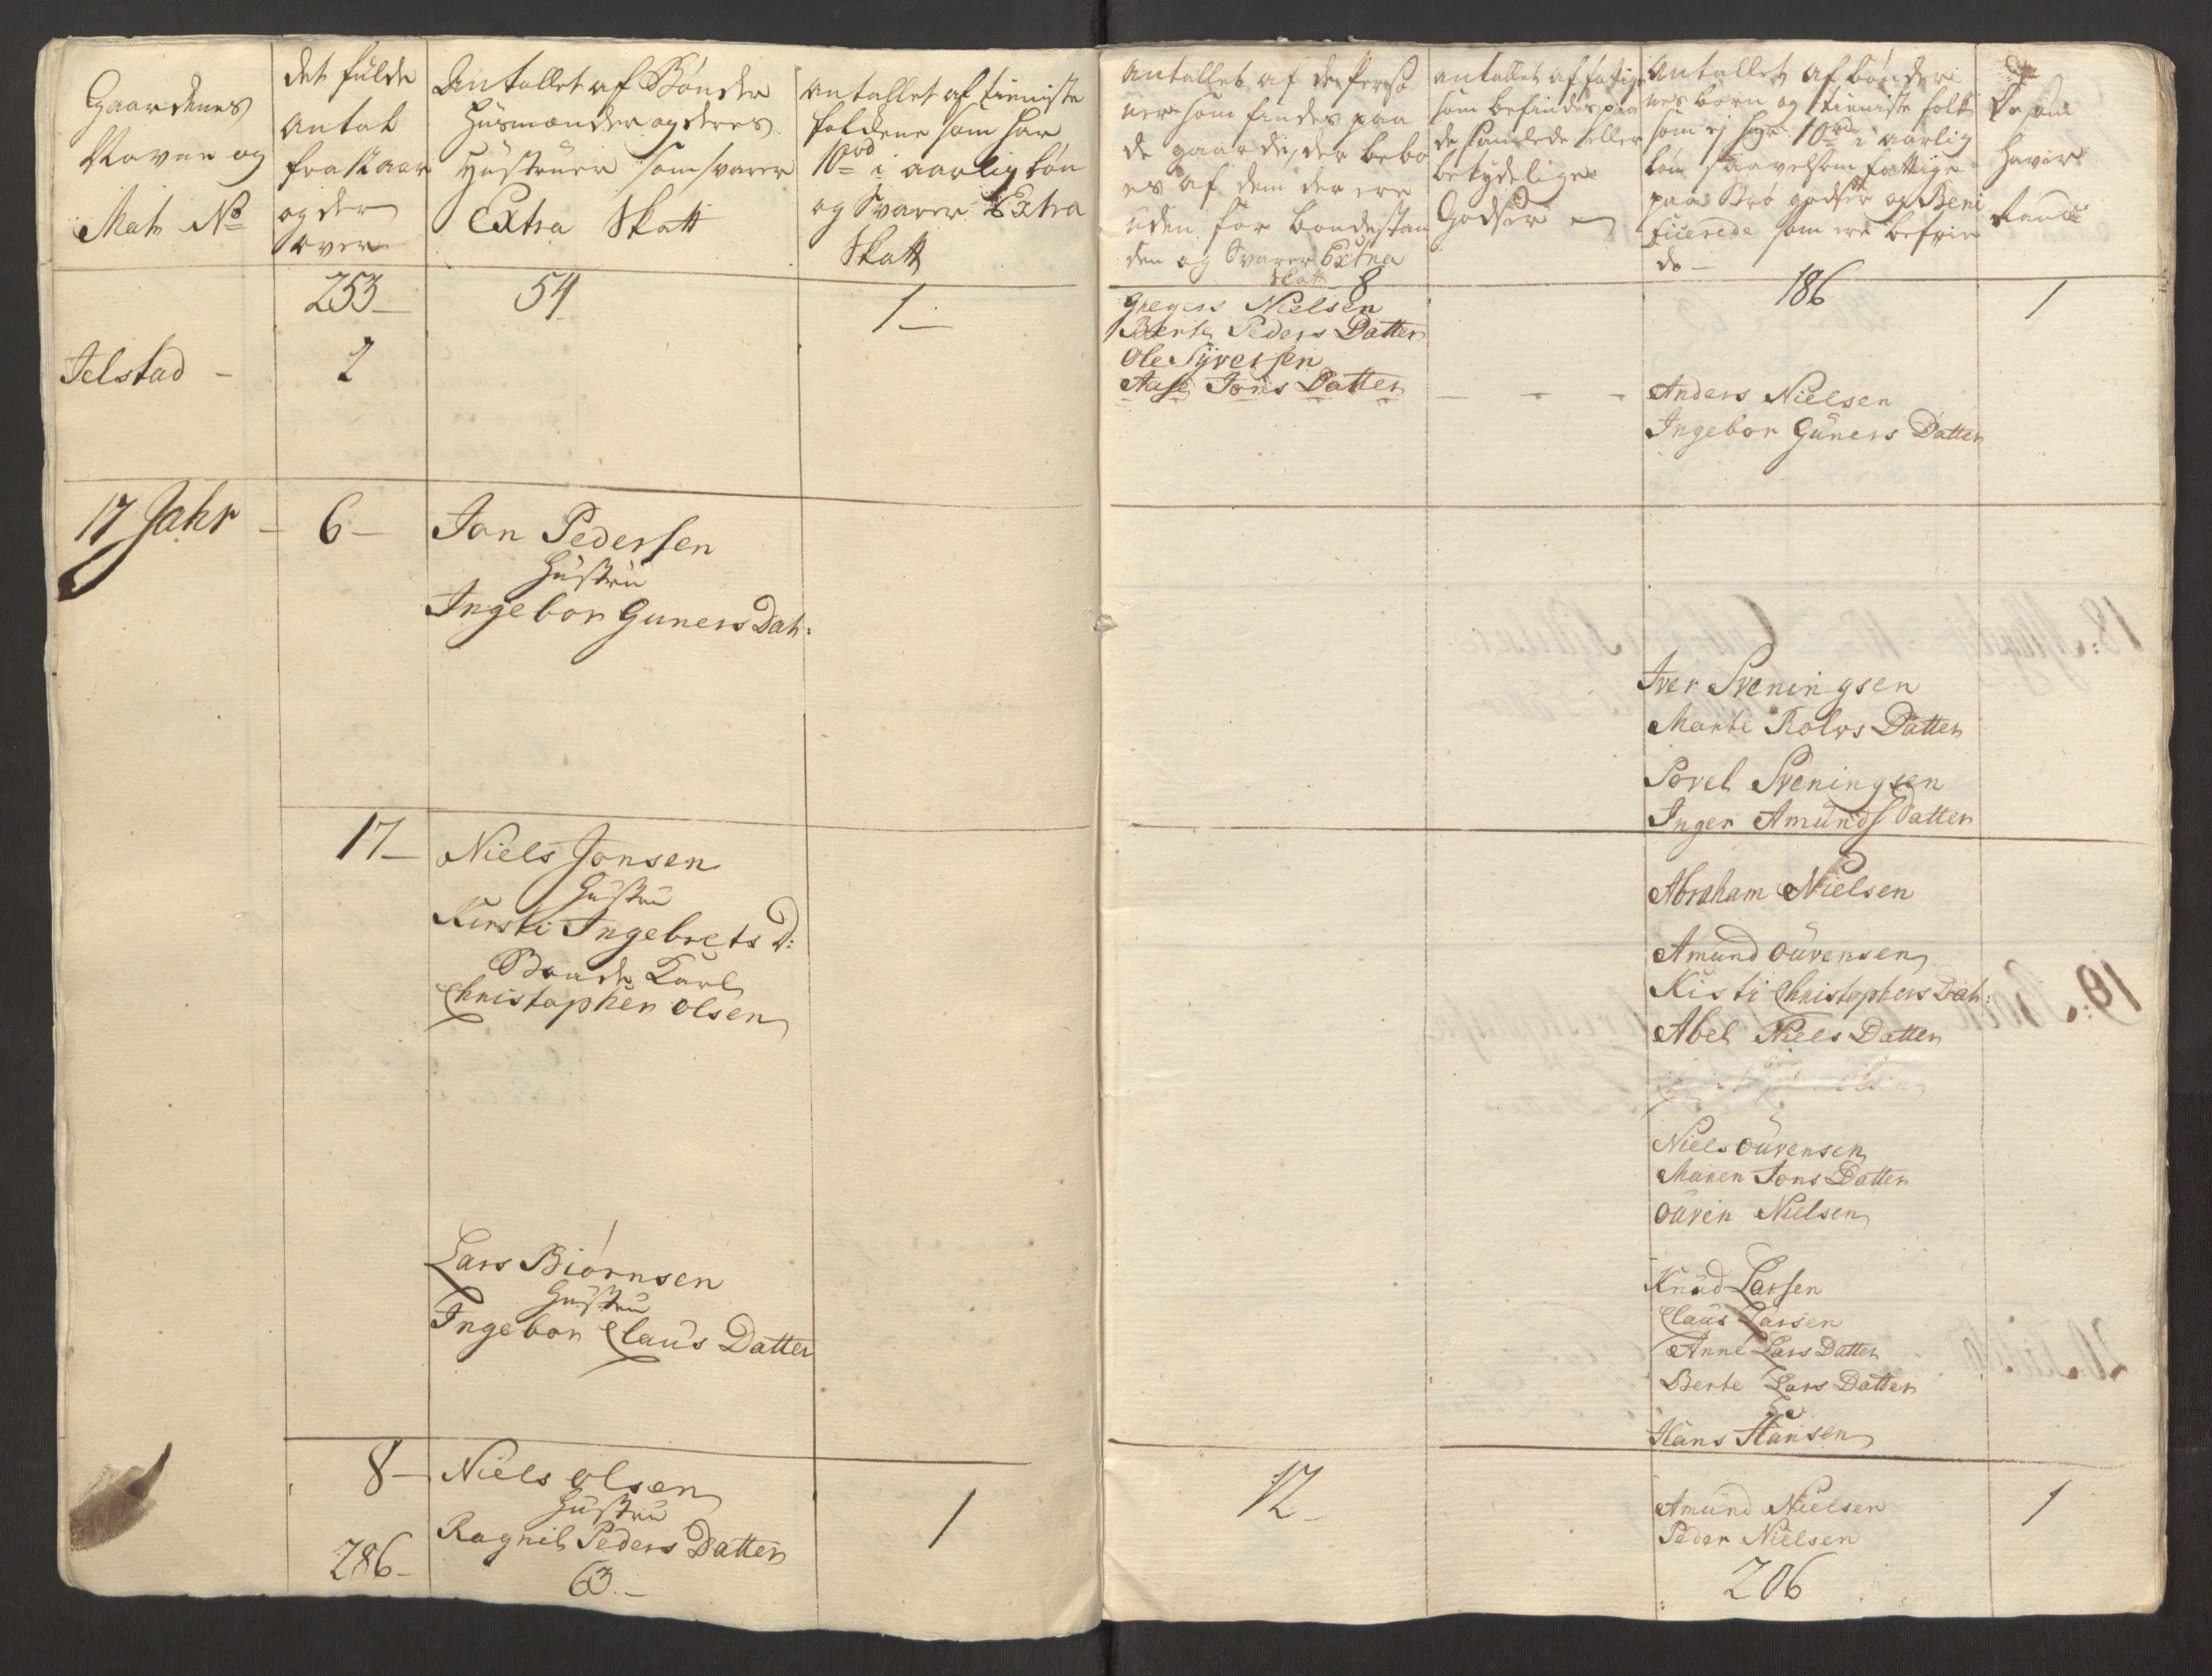 Gaardenes
Navne og
Matr No
det fulde
Antal
fra 12 aar
og der
over
Antallet af Bønder
Huusmænder og deres
Hustruer som svarer
Extra Skatt
Antallet af tieniste
folckene som har
10 rd i aarlig løn
og Svarer Extra
Skatt
253
54
1
Jelstad
2
17 Jahr
6
Jon Pedersen
Hustru
Ingebor Guners Dat:
17
Niels Jonsen
Hustru
Kirsti Ingebrets D:
Christopher Olsen
Lars Biørnsen
Hustru
Ingebor Claus Datter
8
Niels Olsen
Hustru
Ragnil Peders Datter
286
63
1
Antallet af de Perso
ner som findes paa
de gaarde, der bebo
es af dem der ere
uden for bondestan
den og Svarer Extra
Skatt 8
Antallet af fattige
som befindes paa
de samlede eller
betydelige
Godser
Antallet af bønder
nes børn og tieniste folk
som ej har 10 rd i aarlig
løn saavelsom fattige
paa Strø godser og Bene
ficerede som ere befrie
de
186
De som
haver
1
Gregers Nielsen
Berte Peders Datter
Ole Syversen
Aase Jons Datter
Anders Nielsen
Ingebor Guners Datter
Iver Sveningsen
Marte Rolvs Datter
Povel Sveningsen
Inger Amunds Datter
Abraham Nielsen
Amund Ourensen
Kisti Christophers Dat:
Abel Niels Datter
Niels Ourensen
Maren Jons Datter
Ouren Nielsen
Knud Larsen
Claus Larsen
Anne Lars Datter
Berte Lars Datter
Hans Hansen
12
Amund Nielsen
Peder Nielsen
206
1